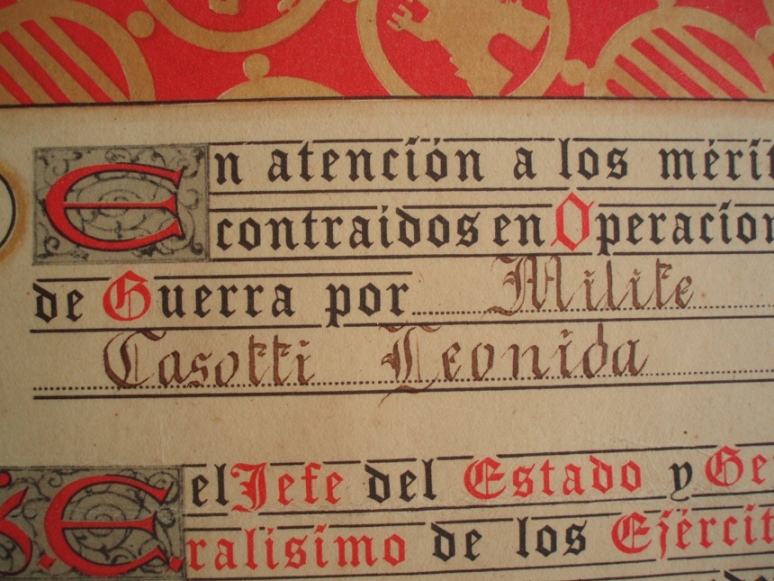 En atención a los mérit
contraidos en Operacion
de Guerra por Milite
Casotti Leonida
S.E. el Jefe del Estado y Ge
ralisimo de los Ejércit